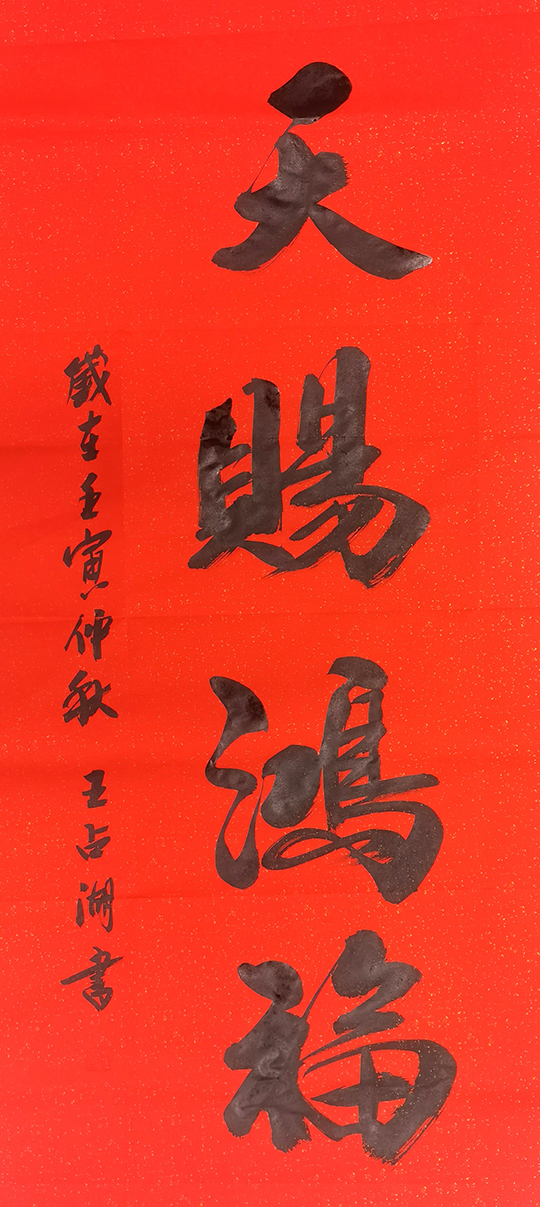 天賜鴻福
歲在壬寅仲秋 王占湖書